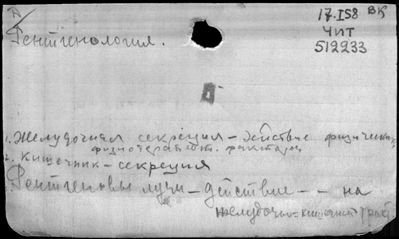 А
Рентгенология.
17.IS8 ВК
ЧИТ
512233
1. Желудочная секреция – действие физических
физиотерапевт. факторов
2. Кишечник – секреция
Рентгеновы лучи – действие – – на
желудочно-кишечный тракт